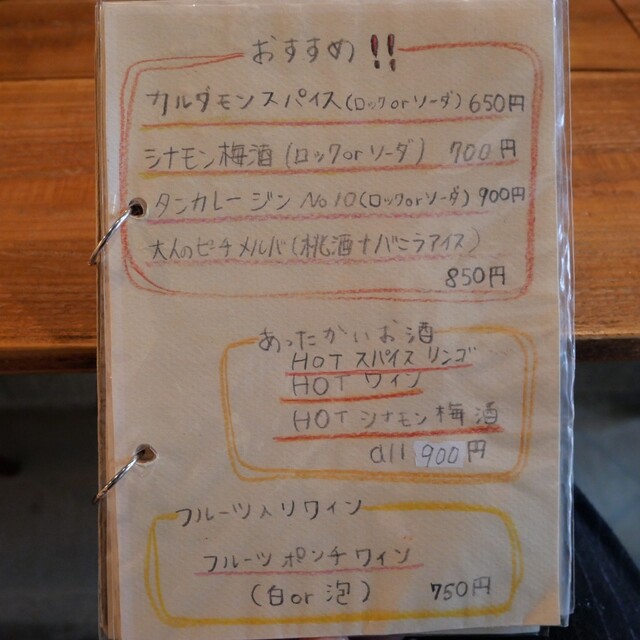 おすすめ!!
カルダモンスパイス(ロックorソーダ) 650円
シナモン梅酒(ロックorソーダ) 700円
タンカレージン No10(ロックorソーダ) 900円
大人のピーチメルバ(桃酒+バニラアイス)
850円
あったかいお酒
HOTスパイスリンゴ
HOTワイン
HOTシナモン梅酒
all 900円
フルーツ入りワイン
フルーツポンチワイン
(白or泡) 750円